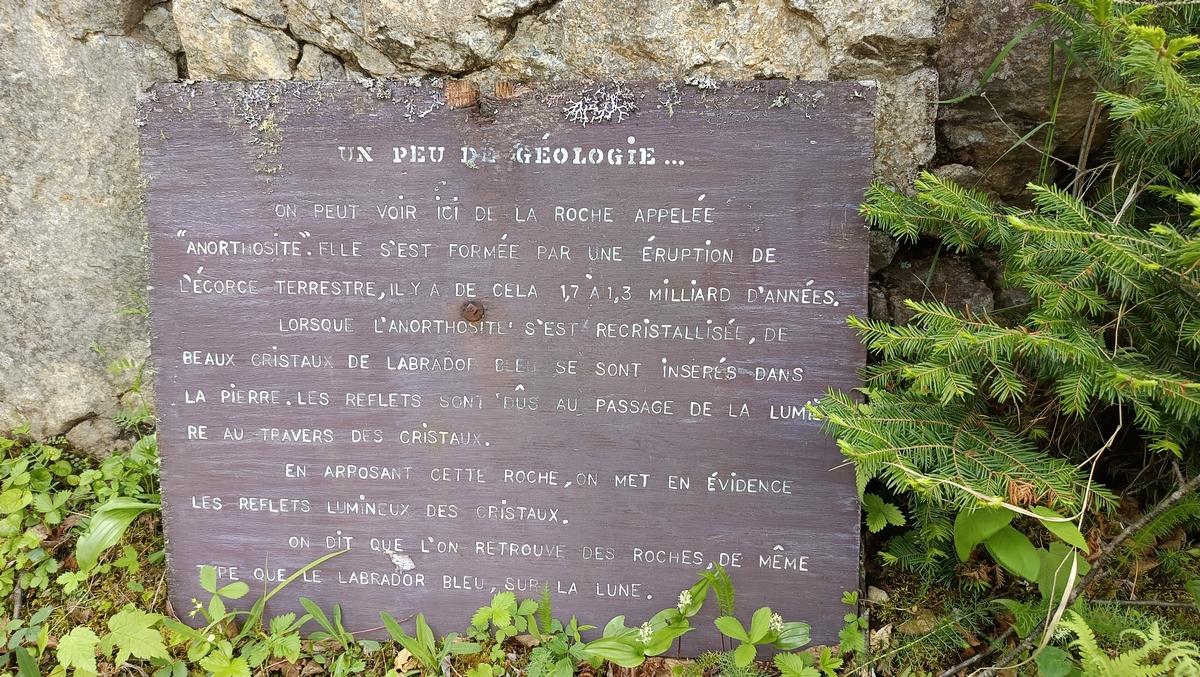 UN PEU DE GÉOLOGIE...
ON PEUT VOIR ICI DE LA ROCHE APPELÉE
"ANORTHOSITE". ELLE S'EST FORMÉE PAR UNE ÉRUPTION DE
L'ÉCORCE TERRESTRE, IL Y A DE CELA 1,7 À 1,3 MILLIARD D'ANNÉES.
LORSQUE L'ANORTHOSITE' S'EST RECRISTALLISÉE, DE
BEAUX CRISTAUX DE LABRADOR BLEU SE SONT INSÉRÉS DANS
LA PIERRE. LES REFLETS SONT DÛS AU PASSAGE DE LA LUMIÈ
RE AU TRAVERS DES CRISTAUX.
EN ARPOSANT CETTE ROCHE, ON MET EN ÉVIDENCE
LES REFLETS LUMINEUX DES CRISTAUX.
ON DIT QUE L'ON RETROUVE DES ROCHES, DE MÊME
TYPE QUE LE LABRADOR BLEU, SUR LA LUNE.